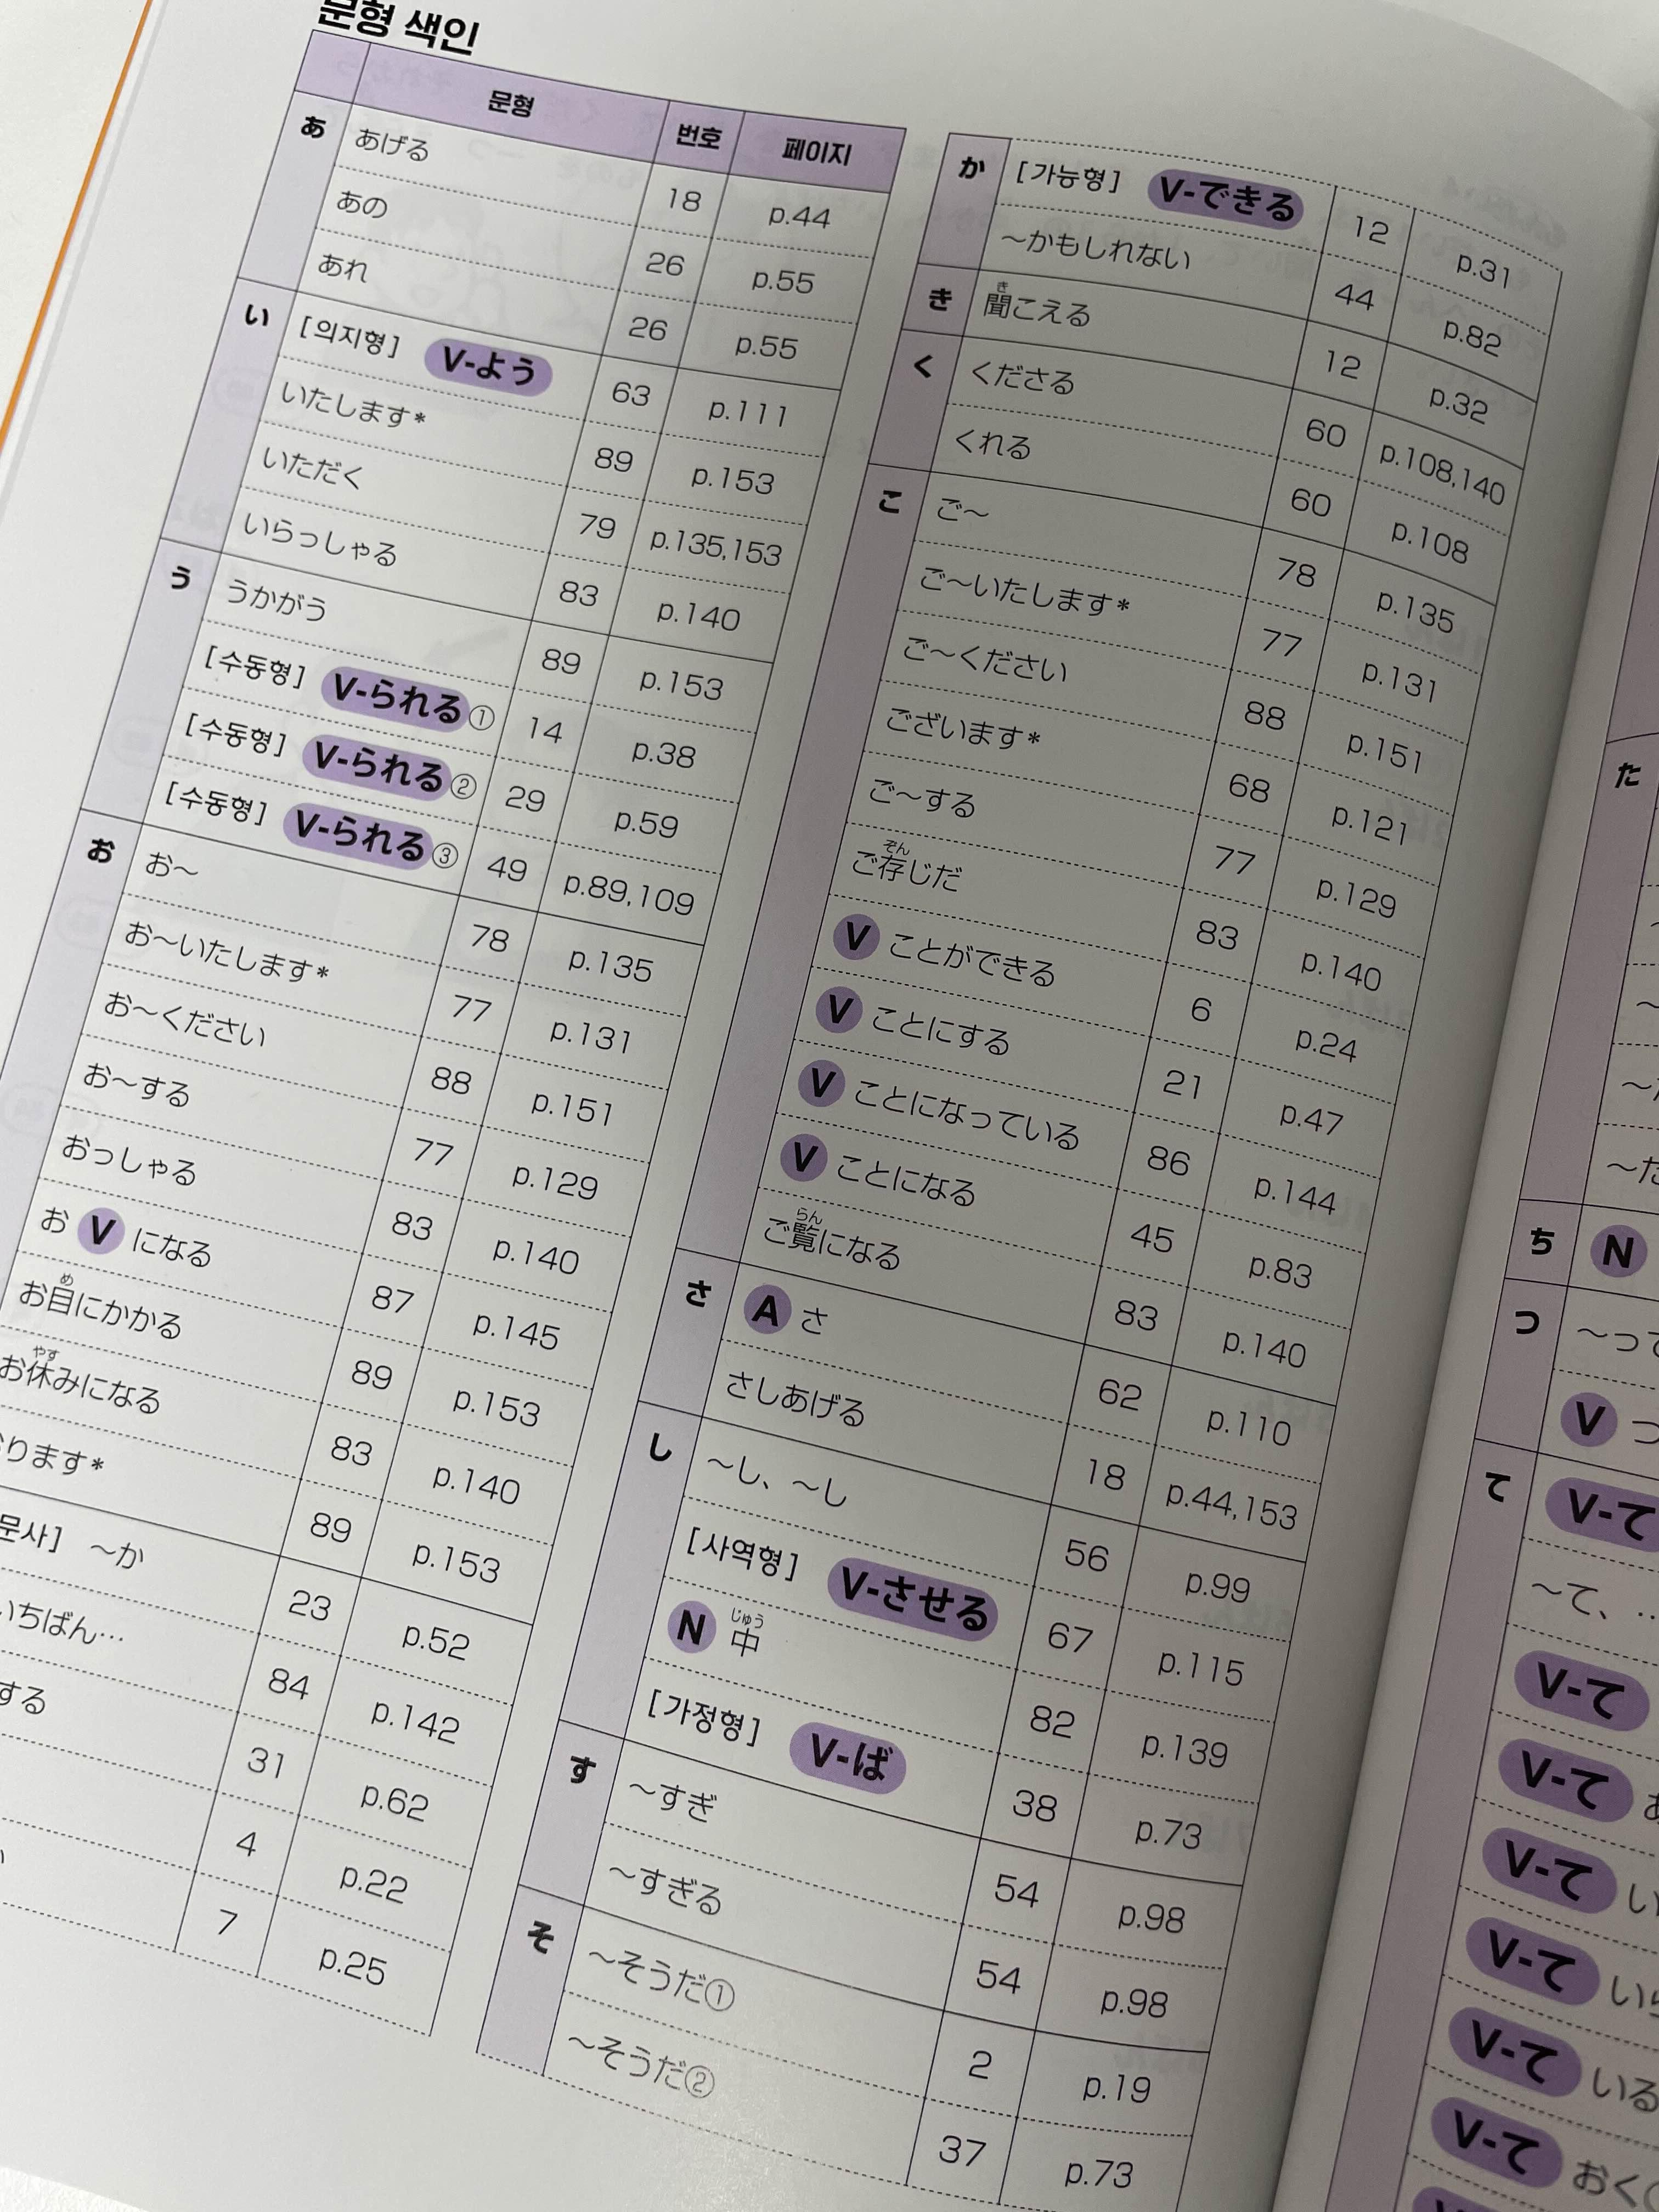 문형 색인
문형 번호 페이지
あ あげる 18 p.44
あの 26 p.55
あれ 26 p.55
い [의지형] V-よう 63 p.111
いたします* 89 p.153
いただく 79 p.135,153
いらっしゃる 83 p.140
う うかがう 89 p.153
[수동형] V-られる① 14 p.38
[수동형] V-られる② 29 p.59
[수동형] V-られる③ 49 p.89,109
お お〜 78 p.135
お〜いたします* 77 p.131
お〜ください 88 p.151
お〜する 77 p.129
おっしゃる 83 p.140
お V になる 87 p.145
お目にかかる 89 p.153
め
お休みになる 83 p.140
やす
ります* 89 p.153
문사] 〜か 23 p.52
いちばん… 84 p.142
する 31 p.62
4 p.22
7 p.25
か [가능형] V-できる 12 p.31
〜かもしれない 44 p.82
き 聞こえる 12 p.32
き
く くださる 60 p.108,140
くれる 60 p.108
こ ご〜 78 p.135
ご〜いたします* 77 p.131
ご〜ください 88 p.151
ございます* 68 p.121
ご〜する 77 p.129
ご存じだ 83 p.140
ぞん
V ことができる 6 p.24
V ことにする 21 p.47
V ことになっている 86 p.144
V ことになる 45 p.83
ご覧になる 83 p.140
らん
さ A さ 62 p.110
さしあげる 18 p.44,153
し 〜し、〜し 56 p.99
[사역형] V-させる 67 p.115
N 中 82 p.139
じゅう
[가정형] V-ば 38 p.73
す 〜すぎ 54 p.98
〜すぎる 54 p.98
そ 〜そうだ① 2 p.19
〜そうだ② 37 p.73
た
〜た
ち N
つ 〜って
V つ
て V-て
〜て、…
V-て
V-て あ
V-て い
V-て いら
V-て いる
V-て おく